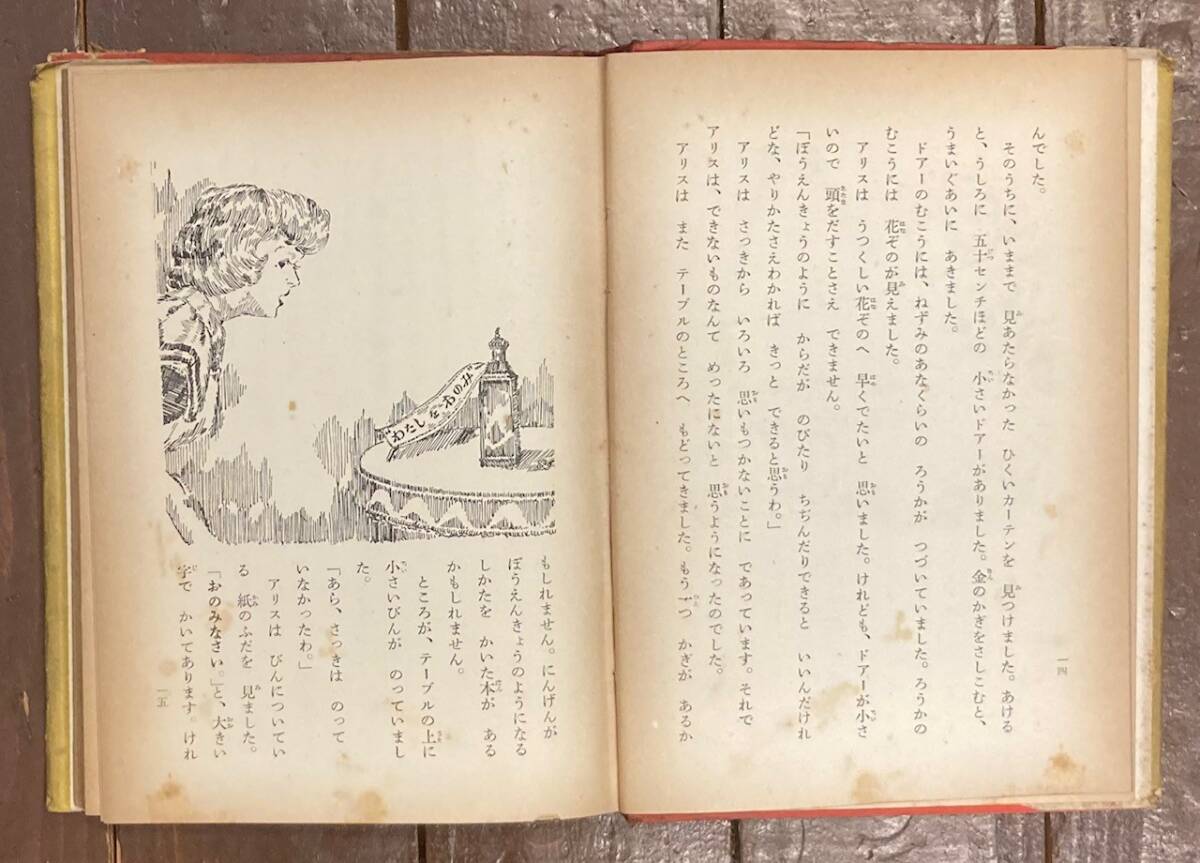 んでした。
そのうちに、いままで 見あたらなかった ひくいカーテンを 見つけました。あける
と、うしろに 五十センチほどの 小さいドアーがありました。金のかぎをさしこむと、
うまいぐあいに あきました。
ドアーのむこうには、ねずみのあなぐらいの ろうかが つづいていました。ろうかの
むこうには 花ぞのが見えました。
アリスは うつくしい花ぞのへ 早くでたいと 思いました。けれども、ドアーが小さ
いので 頭をだすことさえ できません。
「ぼうえんきょうのように からだが のびたり ちぢんだりできると いいんだけれ
どな、やりかたさえわかれば きっと できると思うわ。」
アリスは さっきから いろいろ 思いもつかないことに であっています。それで
アリスは、できないものなんて めったにないと 思うようになったのでした。
アリスは また テーブルのところへ もどってきました。もう一つ かぎが あるか
一四
わたしをおのみ
もしれません。にんげんが
ぼうえんきょうのようになる
しかたを かいた本が ある
かもしれません。
ところが、テーブルの上に
小さいびんが のっていまし
た。
「あら、さっきは のって
いなかったわ。」
アリスは びんについてい
る 紙のふだを 見ました。
「おのみなさい。」と、大きい
字で かいてあります。けれ
一五